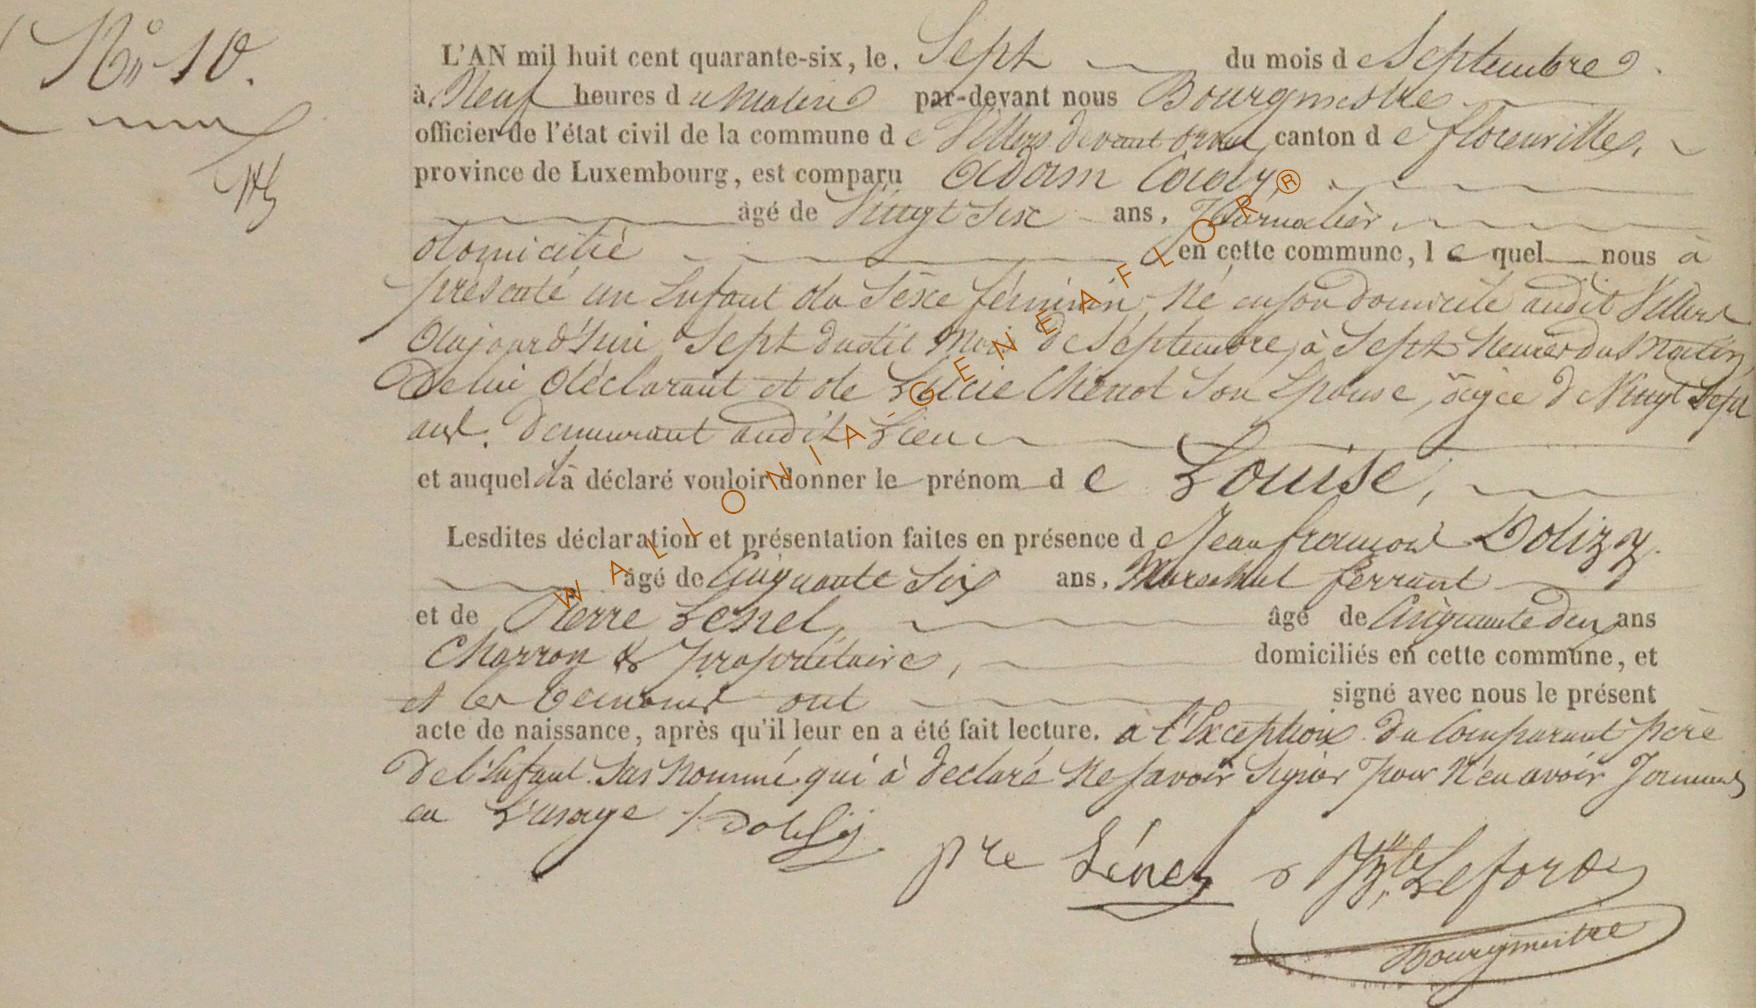 N° 10.
L'AN mil huit cent quarante-six, le Sept du mois de Septembre
à Neuf heures du Matin par-devant nous Bourgmestre
officier de l'état civil de la commune de Villers devant orval canton de florenville,
province de Luxembourg, est comparu Adam
âgé de Vingt Six ans, Journalier,
domicilié en cette commune, lequel nous à
présenté un Enfant du Séxe féminin, Né en son domicile audit Villers
Aujourd'hui Sept dudit Mois de Septembre, à Sept heures du Matin,
De lui déclarant et de Lucie Chenot Son Epouse, agée de Vingt Sept
ans. demeurant audit Lieu
et auquel il à déclaré vouloir donner le prénom de Louise,
Lesdites déclaration et présentation faites en présence de Jean françois Dolizy.
âgé de Cinquante Six ans, Marechal ferrant
et de Pierre Lenel, âgé de Cinquante deux ans
Charron & propriétaire, domiciliés en cette commune, et
et les temoins ont signé avec nous le présent
acte de naissance, après qu'il leur en a été fait lecture. à l'Exception du Comparant père
de l'Enfant Sus Nommé qui à declaré Ne savoir Signer pour N'en avoir Jamais
eu L'usage / Dolizy
pre Lénel Leford
Bourgmestre
WALLONIA-GENEAFLOR®